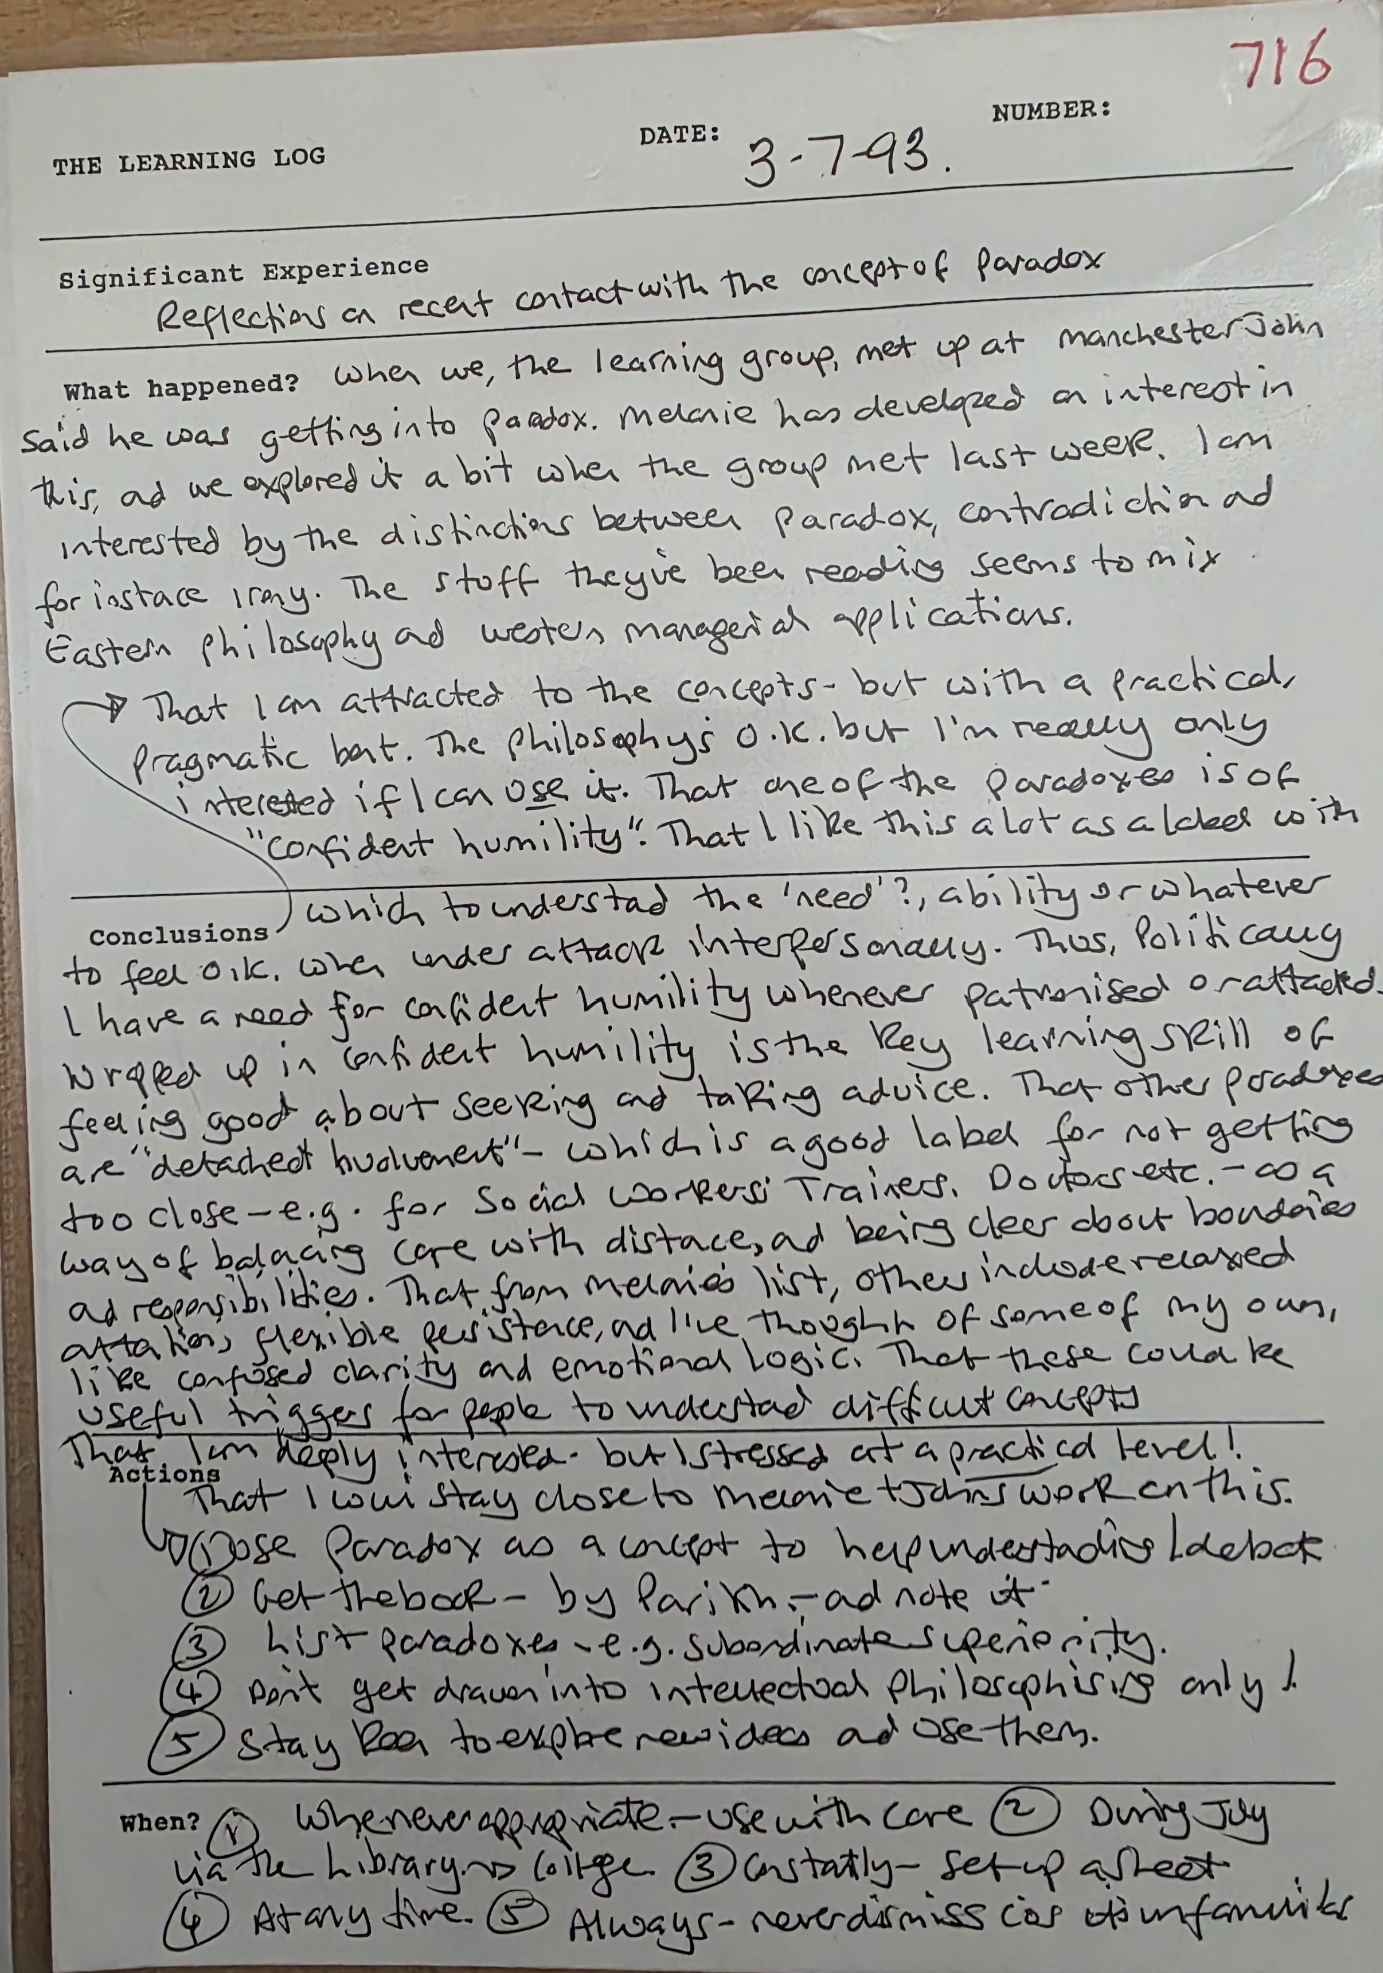 716
THE LEARNING LOG
DATE: 3-7-93.
NUMBER:
Significant Experience
Reflections on recent contact with the concept of Paradox
What happened? When we, the learning group, met up at Manchester John
said he was getting into paradox. Melanie has developed an interest in
this, ad we explored it a bit when the group met last week. I am
interested by the distinctions between paradox, contradiction ad
for instace irony. The stuff they've been reading seems to mix
Eastern philosophy ad western managerial applications.
That I am attracted to the concepts - but with a practical,
pragmatic bent. The philosophy's O.K. but I'm really only
interested if I can use it. That one of the paradoxes is of
"confident humility". That I like this a lot as a label with
which to understad the 'need'?, ability or whatever
Conclusions
to feel O.K. when under attack interpersonally. Thus, Politically
I have a need for confident humility whenever patronised or attacked.
Wrapped up in confident humility is the key learning skill of
feeling good about seeking and taking advice. That other paradoxes
are "detached involvement" - which is a good label for not getting
too close - e.g. for Social Workers; Trainers, Doctors etc. - as a
way of balacing care with distace, ad being clear about boundaries
ad responsibilities. That from Melanie's list, others include relaxed
attention, flexible persistence, ad I've thought of some of my own,
like confused clarity and emotional logic. That these could be
useful triggers for people to understad difficult concepts
That I am deeply interested - but I stressed at a practical level!
Actions
That I will stay close to Melanie + John's work on this.
(1) Use Paradox as a concept to help understading / debate
(2) Get the book - by Parikh, - ad note it.
(3) List paradoxes - e.g. subordinate superiority.
(4) Don't get drawn into intellectual philosophising only!
(5) Stay keen to explore new ideas ad use them.
When? (1) Whenever appropriate - use with care (2) During July
via the Library College. (3) Constatly - set up a sheet
(4) At any time. (5) Always - never dismiss cos its unfamiliar